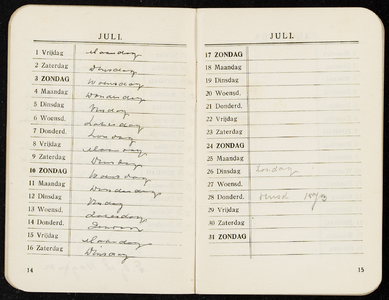 JULI.
1 Vrijdag Maandag
2 Zaterdag Dinsdag
3 ZONDAG Woensdag
4 Maandag Donderdag
5 Dinsdag Vrijdag
6 Woensd. Zaterdag
7 Donderd. Zondag
8 Vrijdag Maandag
9 Zaterdag Dinsdag
10 ZONDAG Woensdag
11 Maandag Donderdag
12 Dinsdag Vrijdag
13 Woensd. Zaterdag
14 Donderd. Zondag
15 Vrijdag Maandag
16 Zaterdag Dinsdag
14
JULI.
17 ZONDAG
18 Maandag
19 Dinsdag
20 Woensd.
21 Donderd.
22 Vrijdag
23 Zaterdag
24 ZONDAG
25 Maandag
26 Dinsdag Zondag
27 Woensd.
28 Donderd.
29 Vrijdag
30 Zaterdag
31 ZONDAG
15